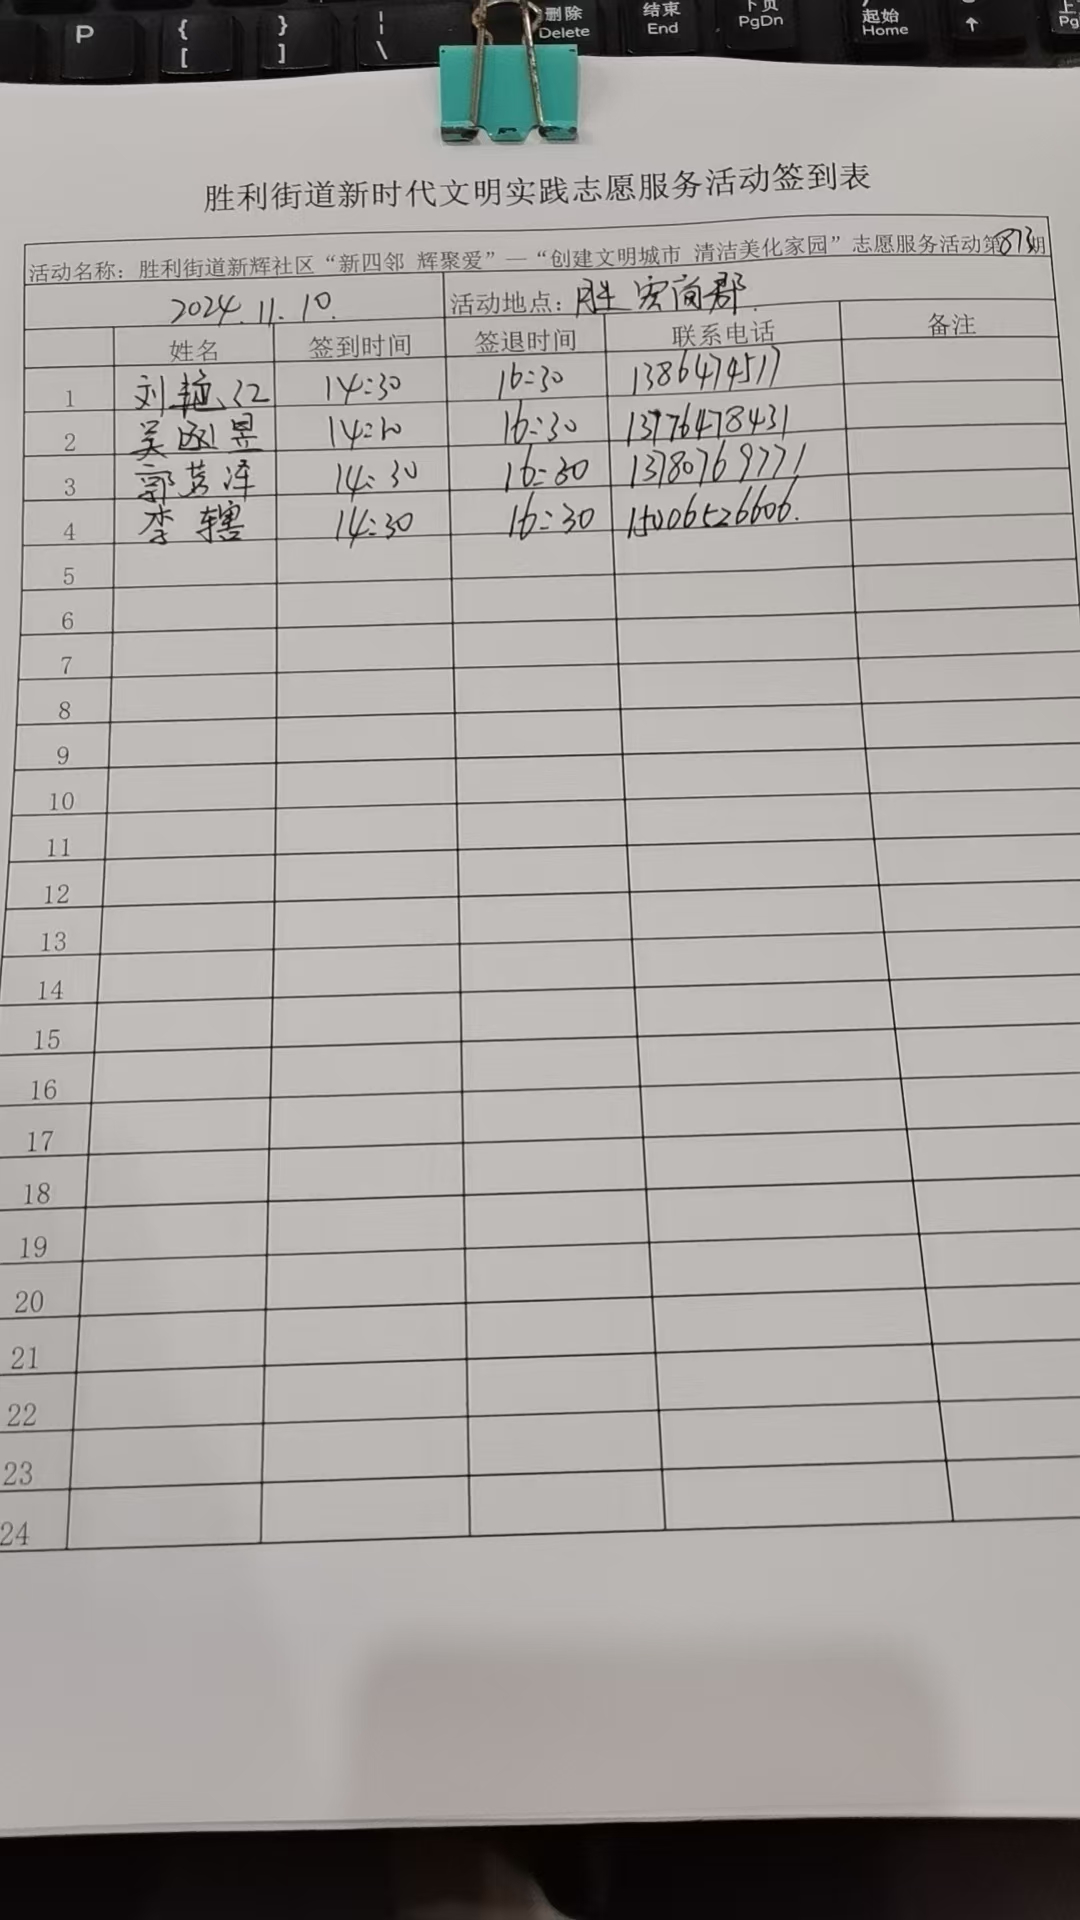 P
{ [
} ]
¦ \
删除 Delete
结束 End
下页 PgDn
起始 Home
↑
胜利街道新时代文明实践志愿服务活动签到表
活动名称：胜利街道新辉社区“新四邻 辉聚爱”—“创建文明城市 清洁美化家园”志愿服务活动第873期
2024.11.10. 活动地点：胜宏简郡.
姓名 签到时间 签退时间 联系电话 备注
1 刘艳红 14:30 16:30 1386474517
2 吴 昱 16:30 13776478431
3 郭 泽 14:30 16:30 13780769771
4 李辖 14:30 16:30 15006526606.
5
6
7
8
9
10
11
12
13
14
15
16
17
18
19
20
21
22
23
24